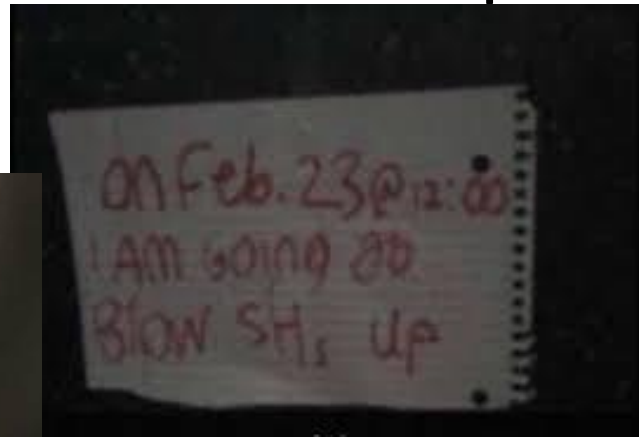 on Feb. 23 @ 12:00
I AM GOING to
BLOW SHs UP